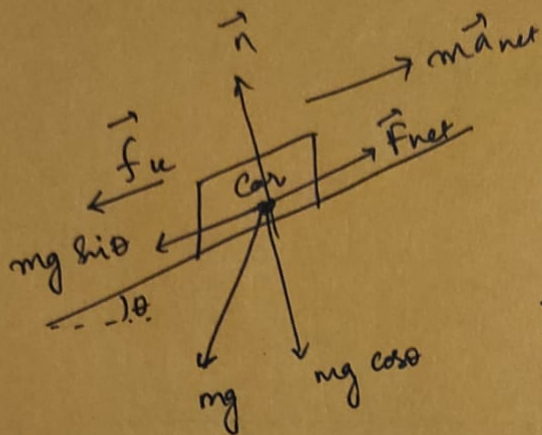 n⃗
ma⃗net
f⃗k
F⃗net
Car
mg sinθ
θ
mg
mg cosθ